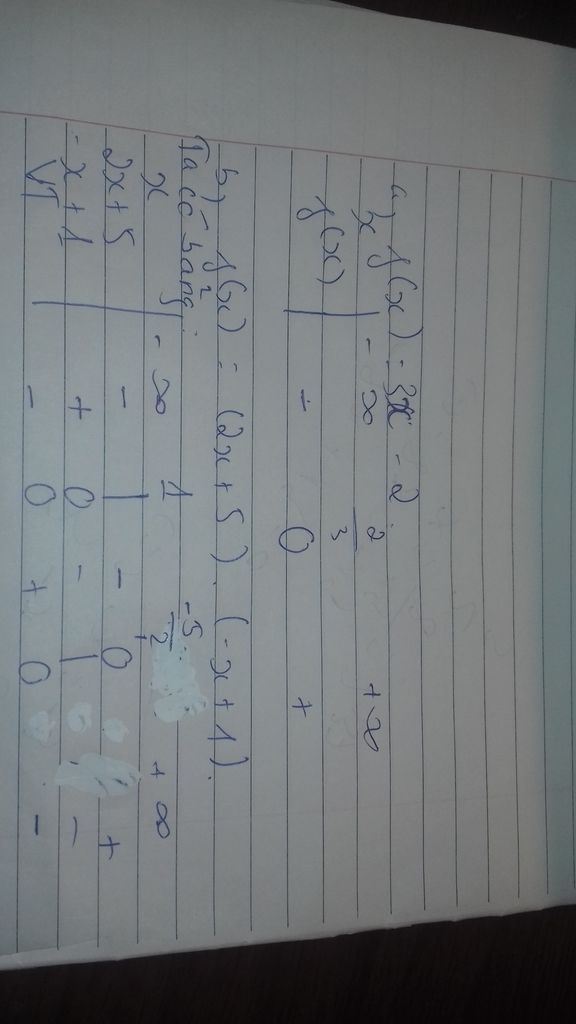 a) f(x) = 3x - 2.
x | -∞ 2/3 +∞
f(x) | - 0 +
b) f(x) = (2x+5).(-x+1).
Ta có bảng:
x | -∞ 1 -5/2 +∞
2x+5 | - | - 0 +
-x+1 | + 0 - | -
VT | - 0 + 0 -